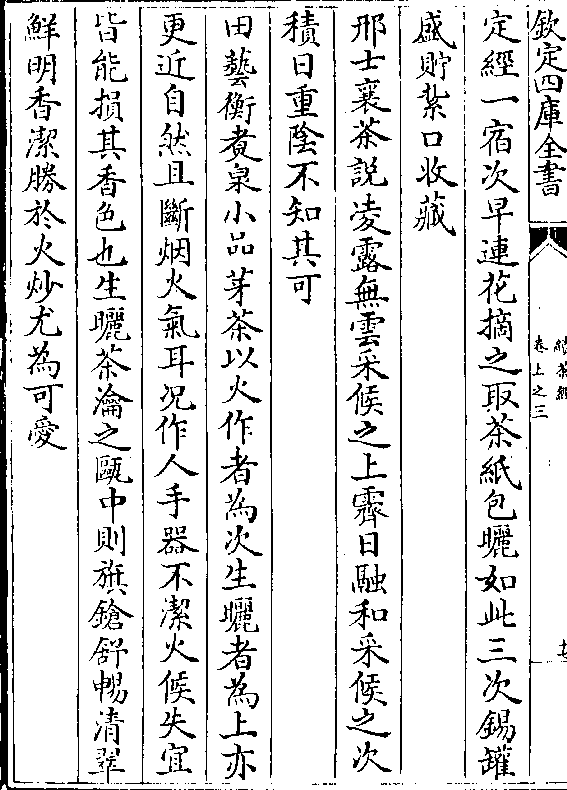 欽定四庫全書
續茶經
卷上之三
定經一宿次早連花摘之取茶紙包曬如此三次錫罐
盛貯紮口收藏
邢士襄茶説凌露無雲采候之上霽日融和采候之次
積日重陰不知其可
田藝衡煑泉小品芽茶以火作者為次生曬者為上亦
更近自然且斷烟火氣耳况作人手器不潔火候失宜
皆能損其香色也生曬茶瀹之甌中則旗鎗舒暢清翠
鮮明香潔勝於火炒尤為可愛